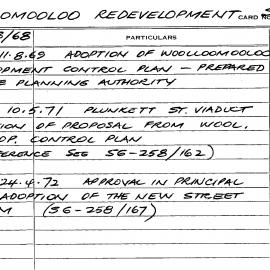 OOMOOLOO REDEVELOPMENT CARD
3/68 PARTICULARS
11.8.69 ADOPTION OF WOOLLOOMOOLOO
OPMENT CONTROL PLAN - PREPARED
E PLANNING AUTHORITY
10.5.71 PLUNKETT ST. VIADUCT
ION OF PROPOSAL FROM WOOL.
OP. CONTROL PLAN
ERENCE SEE 56-258/162)
24.4.72 APPROVAL IN PRINCIPAL
ADOPTION OF THE NEW STREET
M (56-258/167)